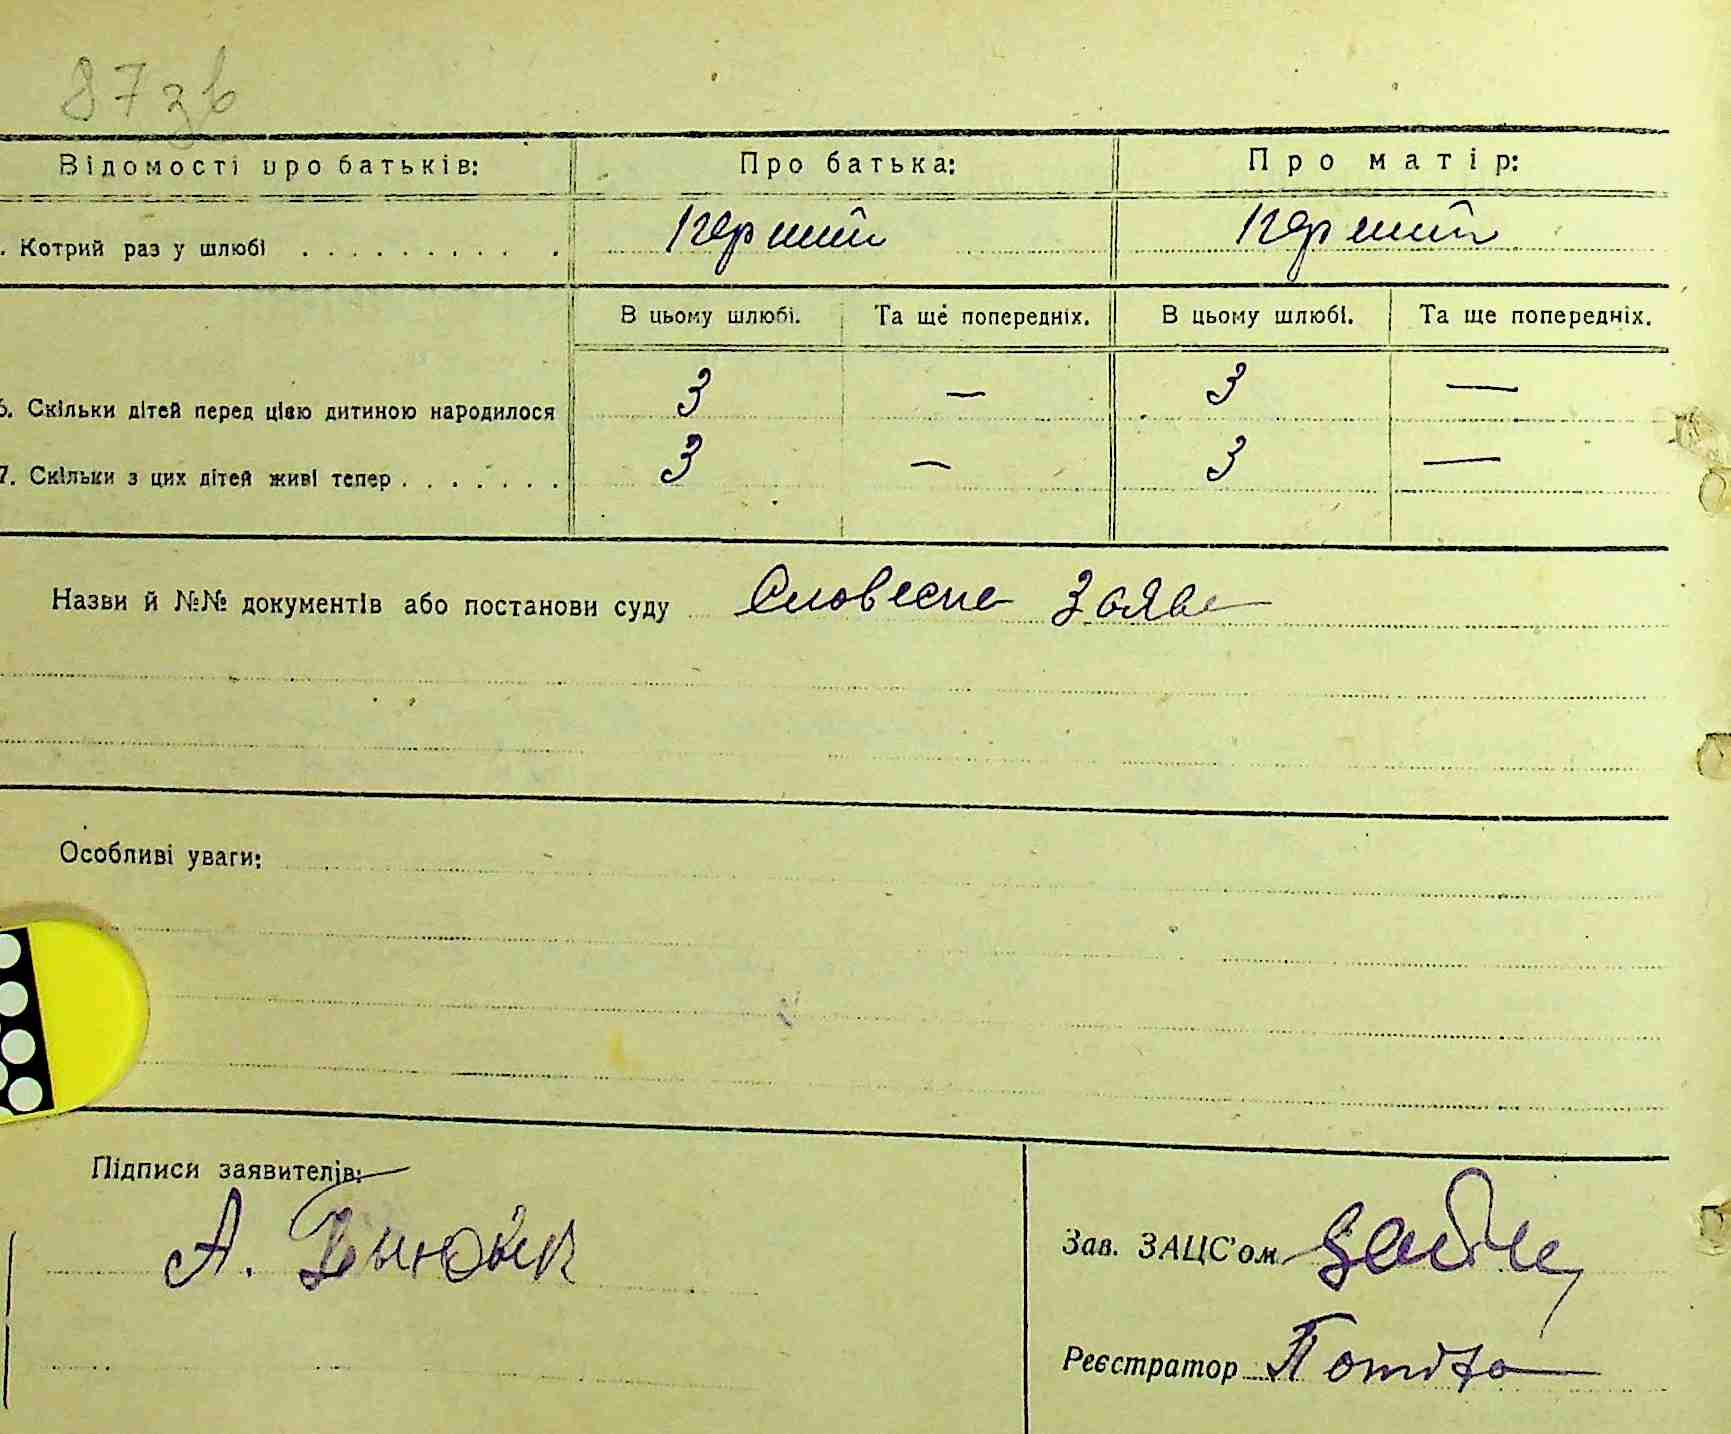 87 зв
Відомості про батьків: Про батька: Про матір:
. Котрий раз у шлюбі . . . . . . . . . . перший перший
В цьому шлюбі. Та ще попередніх. В цьому шлюбі. Та ще попередніх.
6. Скільки дітей перед цією дитиною народилося 3 — 3 —
7. Скільки з цих дітей живі тепер . . . . . . . 3 — 3 —
Назви й №№ документів або постанови суду Словесна Заява
Особливі уваги:
Підписи заявителів:
А.
Зав. ЗАЦС'ом
Реєстратор